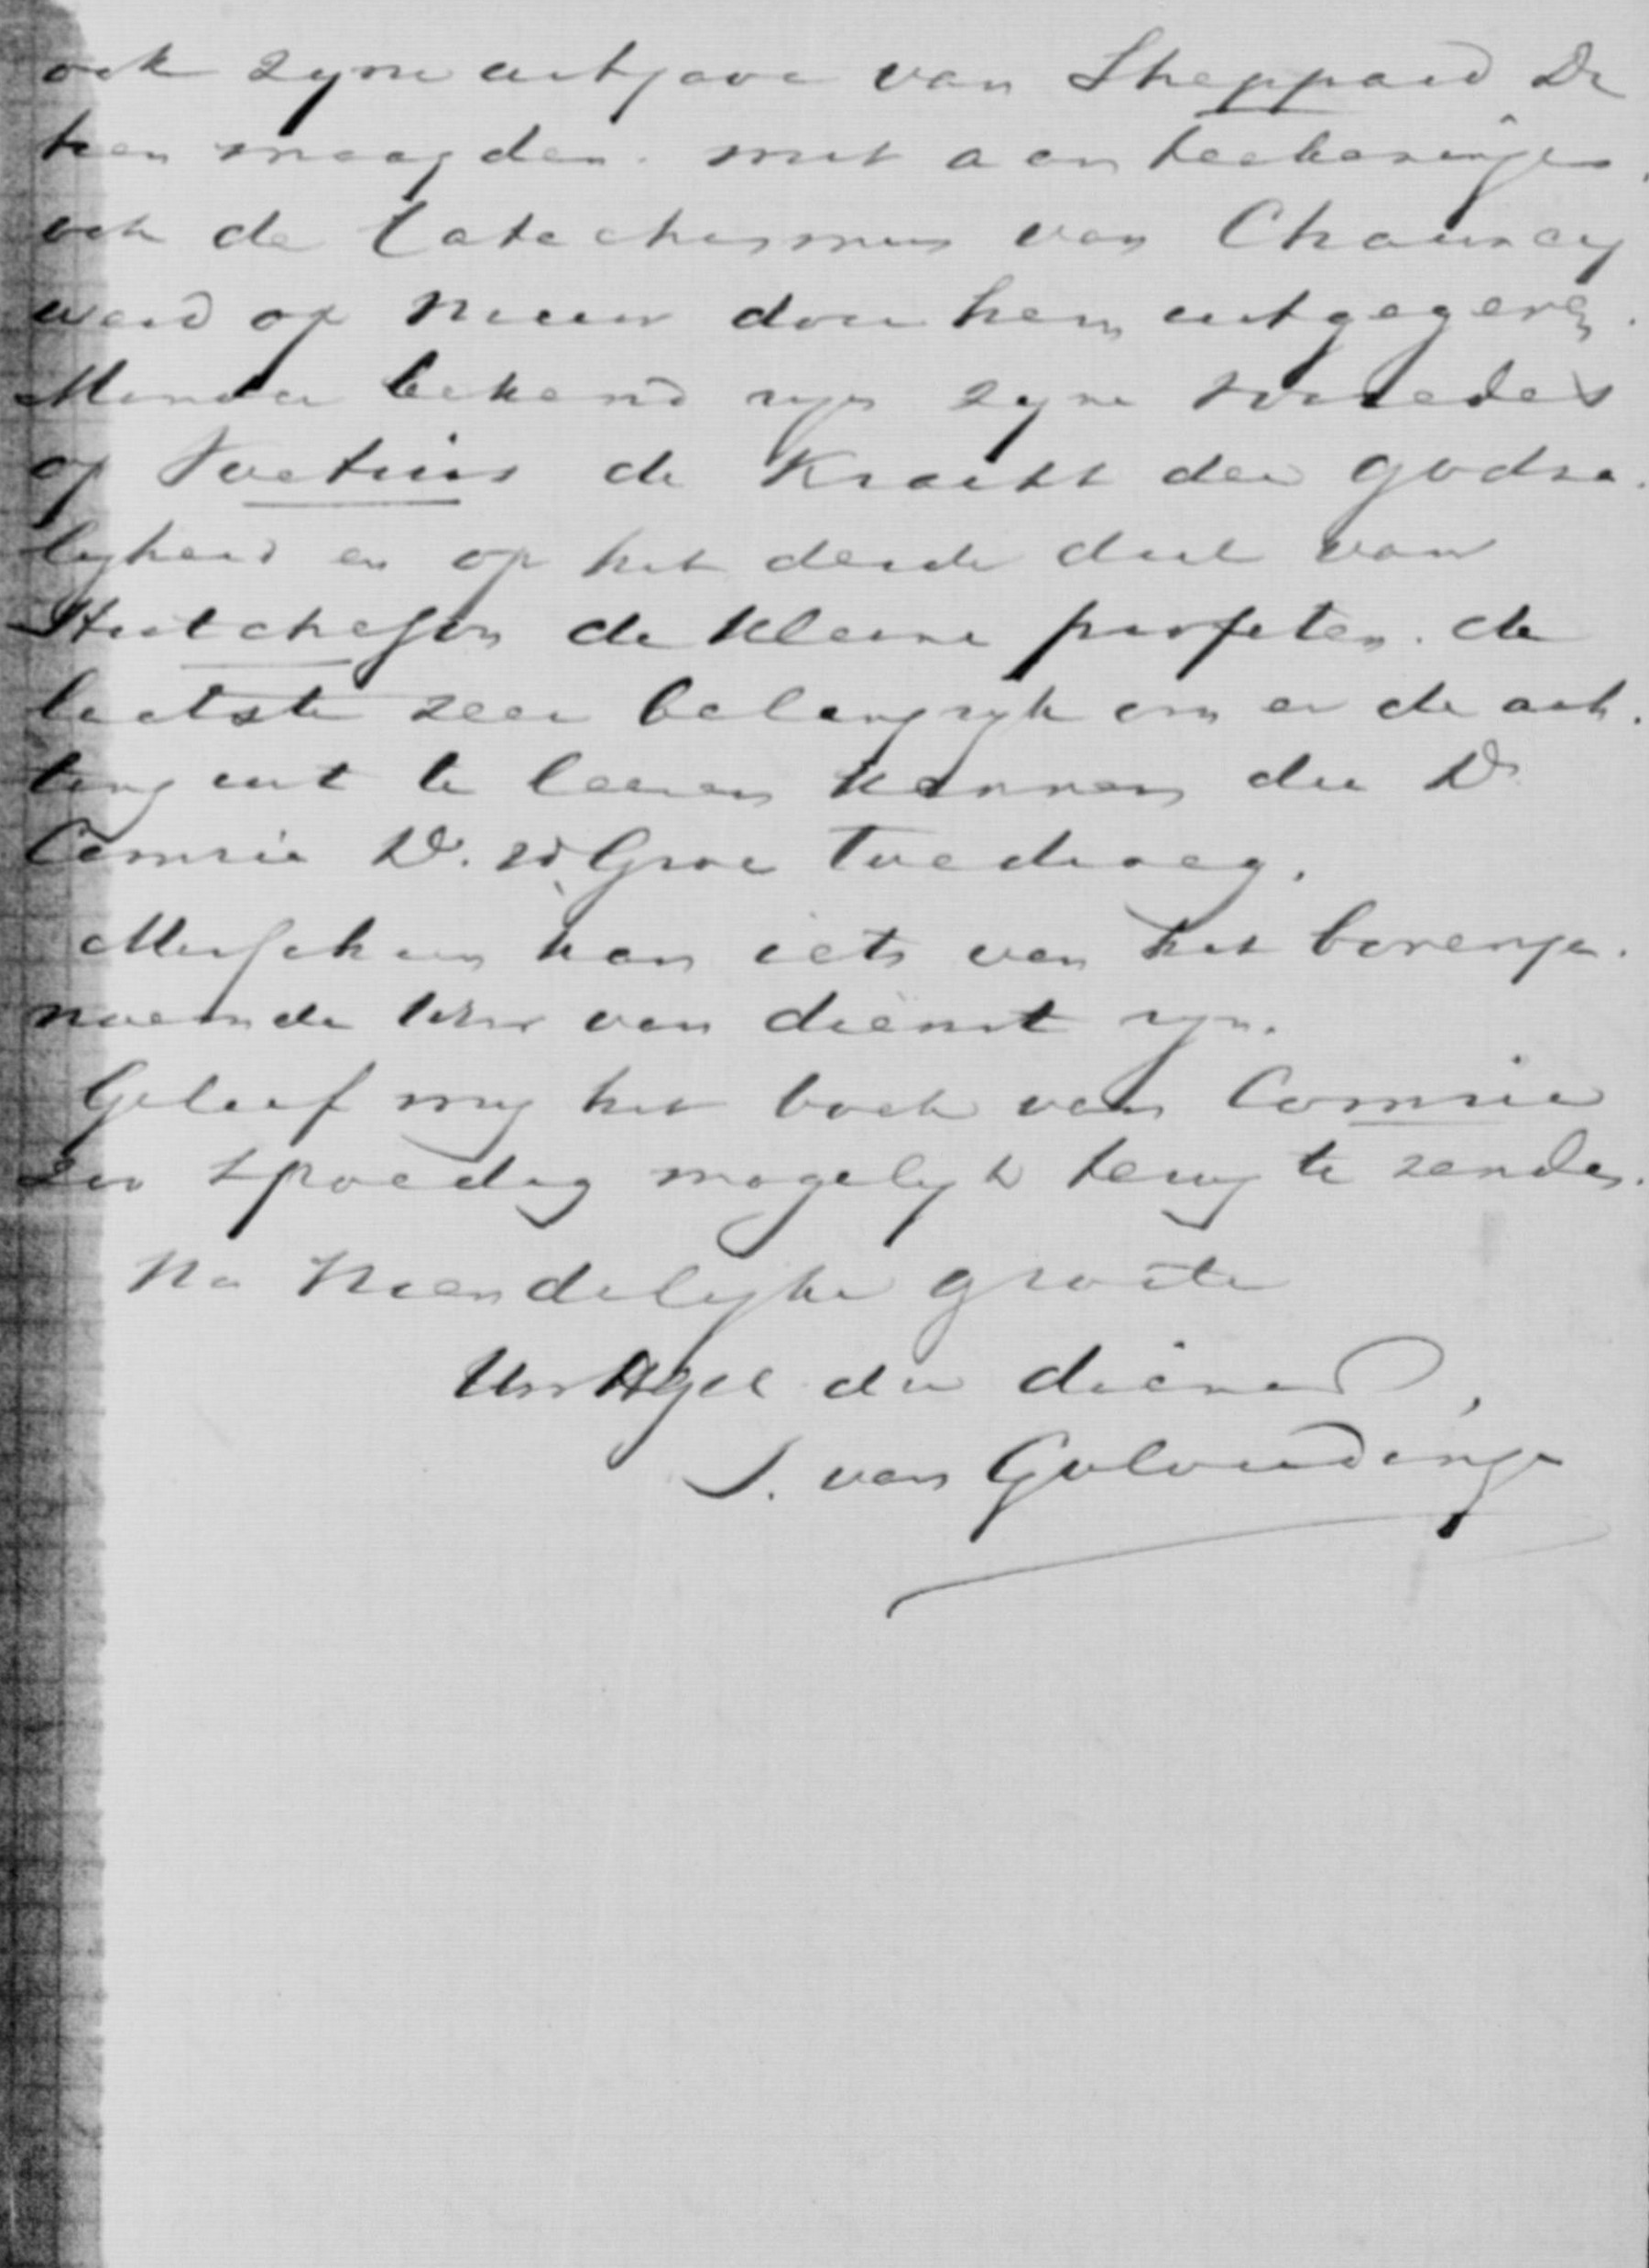 ook zyne uitgave van Sheppard De
tien maagden. met aanteekeningen,
ook de Catechismus van Chauncy
werd op nieuw door hem uitgegeven.
Minder bekend zyn zyne voorredes
op Voetius de Kracht der godza-
ligheid en op het derde deel van
Hutcheson de kleine profeten. de
laatste zeer belangryk om er de ach-
ting uit te leeren kennen die Ds
Comrie Ds. vd. Groe toedroeg.
Misschien kan iets van het bovenge-
noemde Uw van dienst zyn.
Gelief my het boek van Comrie
zoo spoedig mogelyk terug te zenden.
Na vriendelyke groete
Uw dw dienaar,
J. van Golverdinge